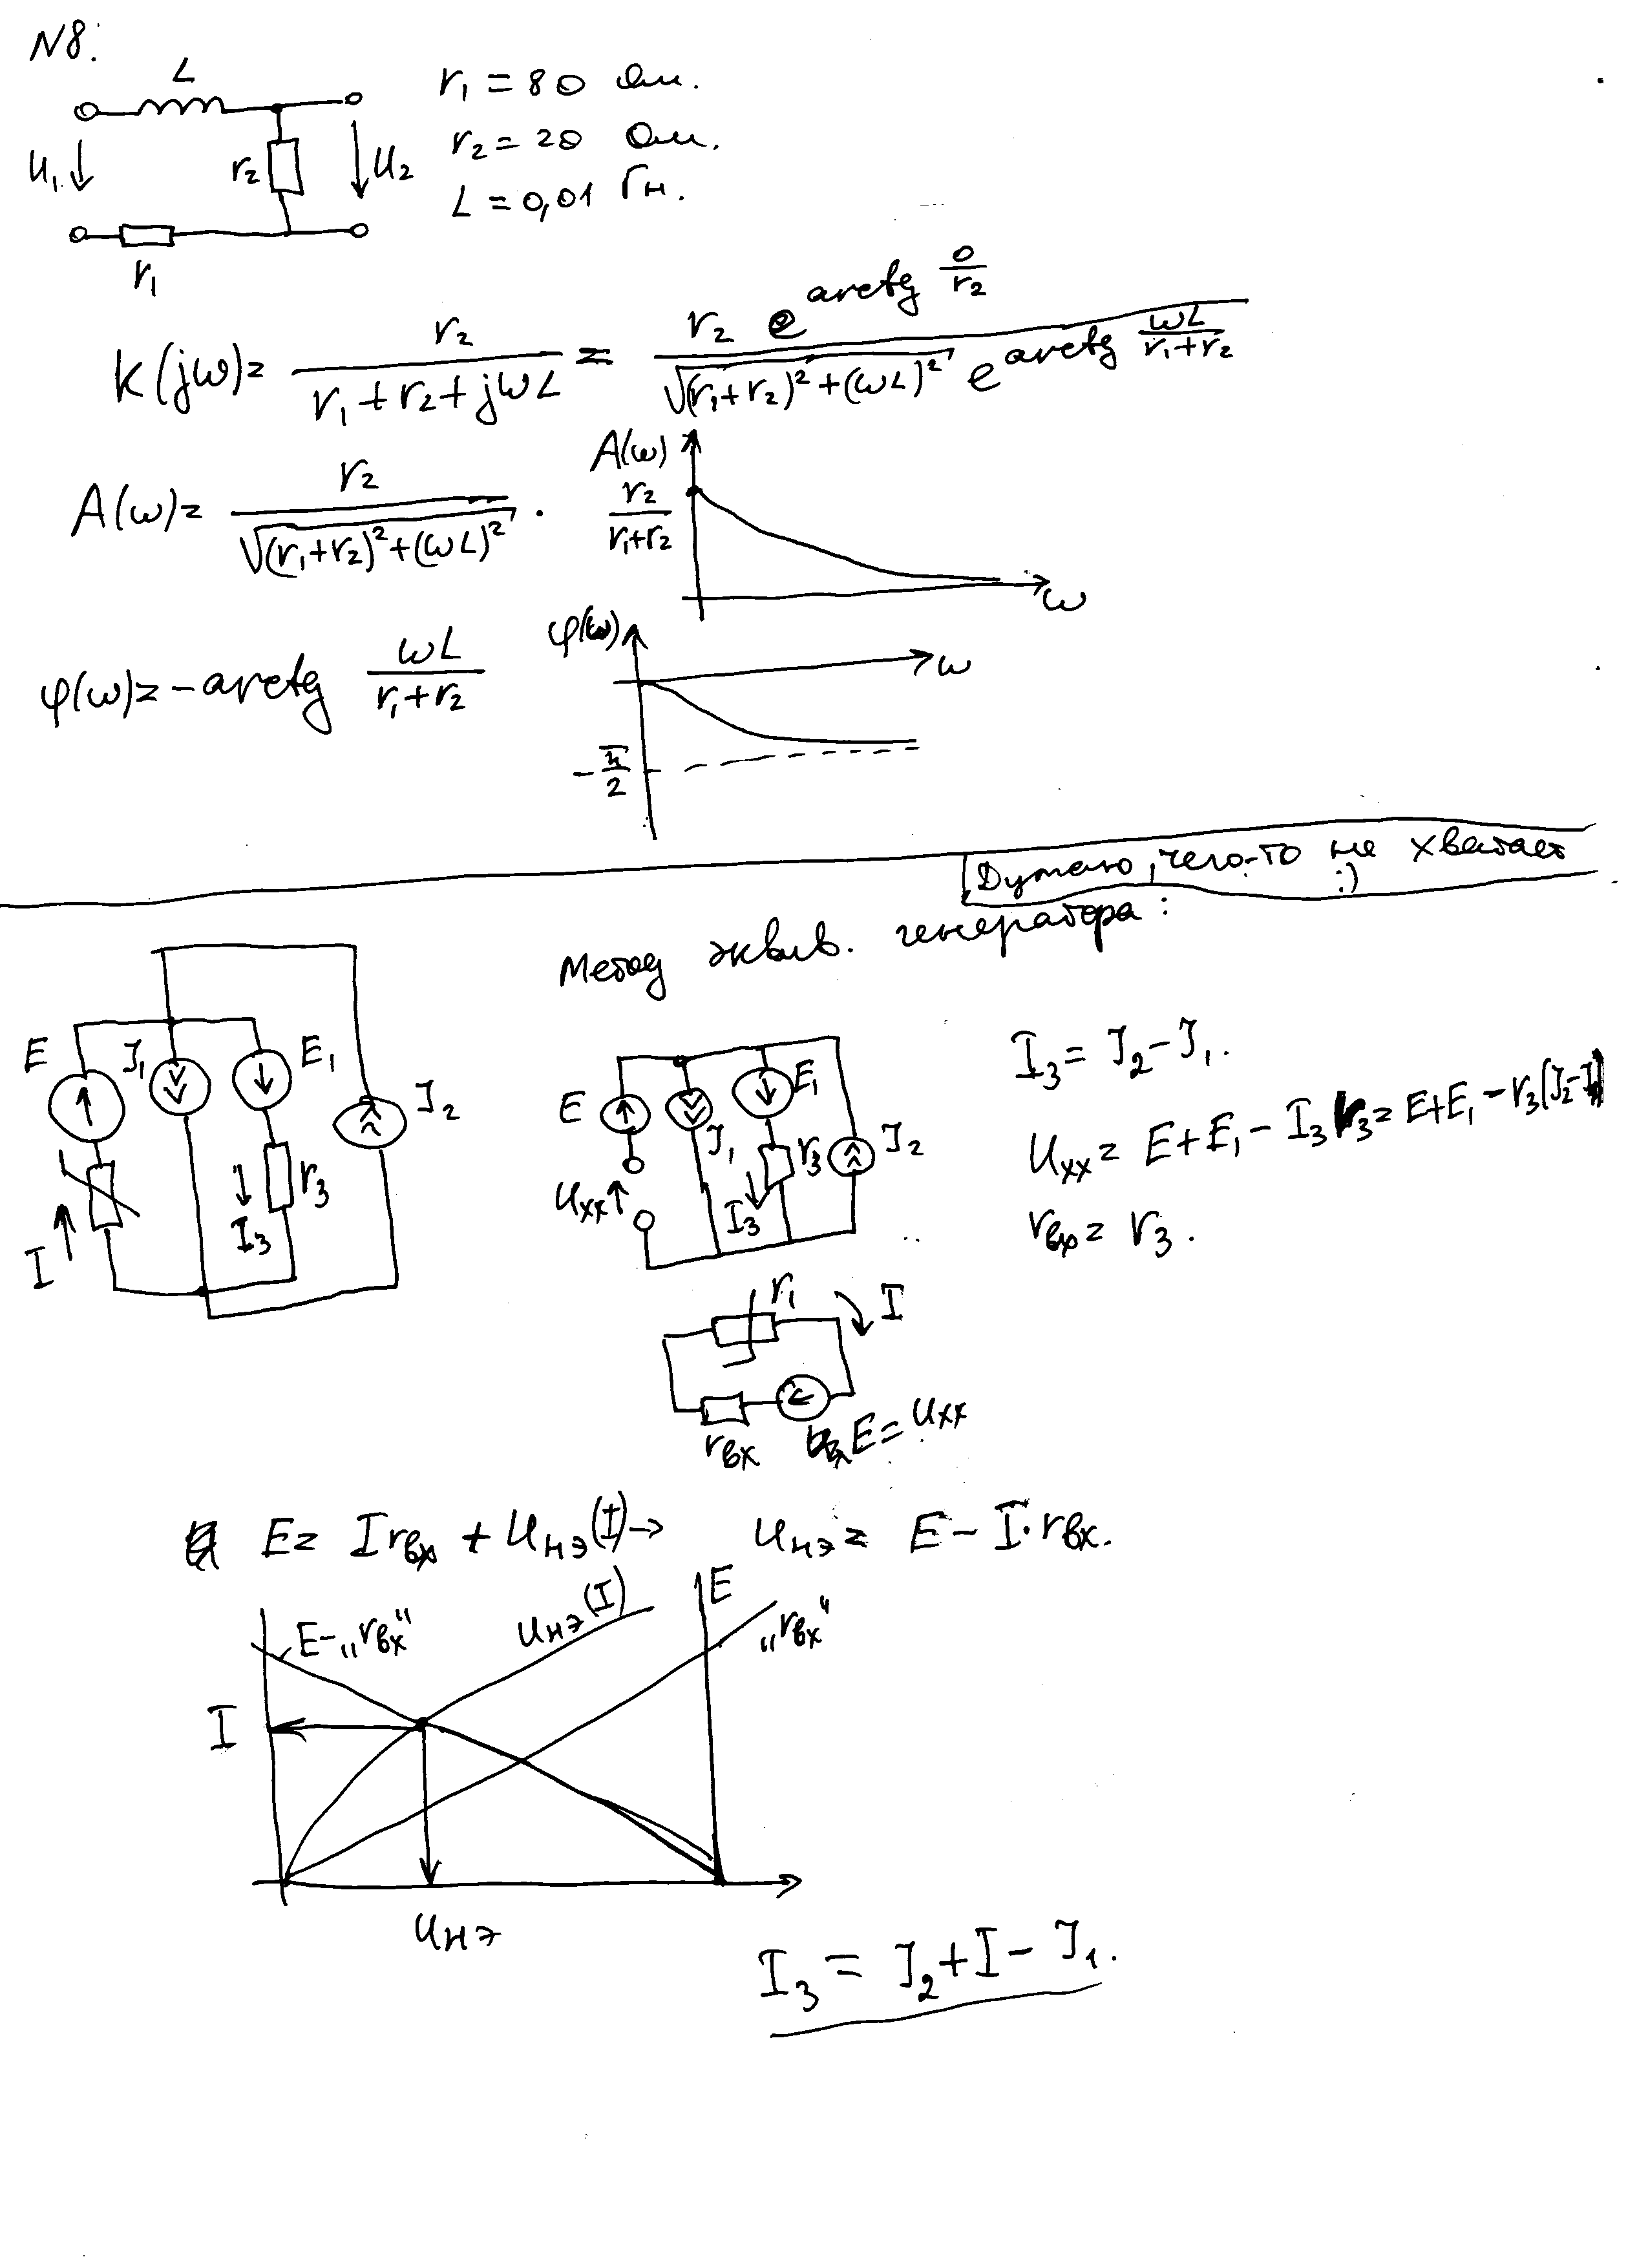 N8.
L
r₁ = 80 Ом.
r₂ = 20 Ом.
L = 0,01 Гн.
U₁
r₂
U₂
r₁
K(jω) = r₂ / (r₁ + r₂ + jωL) = r₂ e^(arctg 0/r₂) / (√((r₁+r₂)² + (ωL)²) e^(arctg ωL/(r₁+r₂)))
A(ω) = r₂ / √((r₁+r₂)² + (ωL)²) .
A(ω)
r₂/(r₁+r₂)
ω
φ(ω) = - arctg ωL/(r₁+r₂)
φ(ω)
ω
-π/2
Думаю, чего-то не хватает :)
Метод эквив. генератора:
E
J₁
E₁
J₂
r₃
I₃
I
E
J₁
E₁
r₃
J₂
Uхх
I₃
I₃ = J₂ - J₁.
Uхх = E + E₁ - I₃ r₃ = E + E₁ - r₃(J₂ - J₁)
rвх = r₃.
r₁
I
rвх
E = Uхх
E = I rвх + Uнэ(I) → Uнэ = E - I · rвх.
E - „rвх“
Uнэ(I)
E
„rвх“
I
Uнэ
I₃ = J₂ + I - J₁.